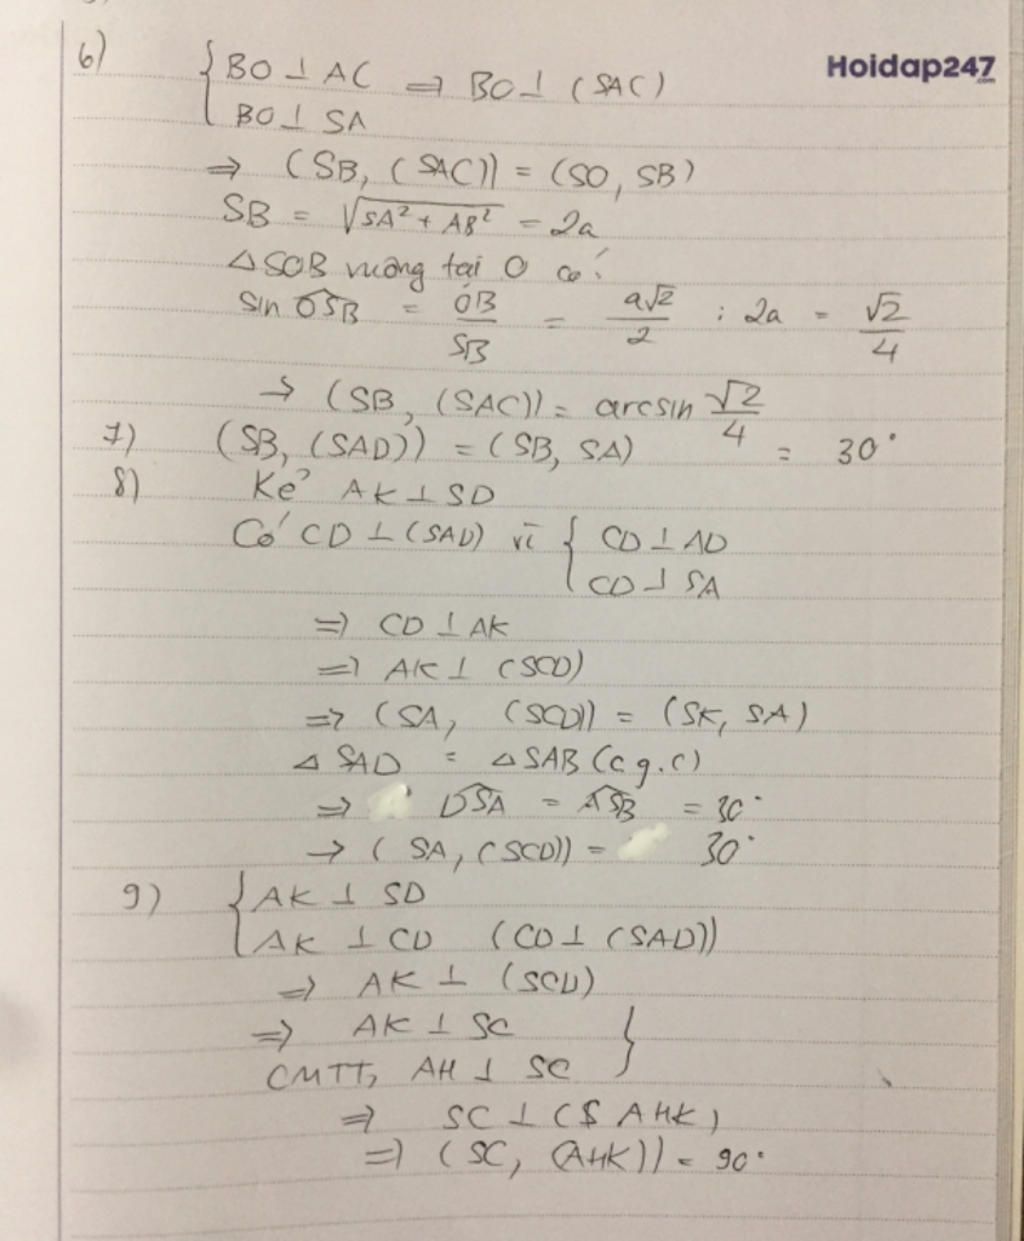 Hoidap247
.com
6) { BO ⊥ AC ⇒ BO ⊥ (SAC)
BO ⊥ SA
⇒ (SB, (SAC)) = (SO, SB)
SB = √(SA² + AB²) = 2a
△SOB vuông tại O có:
sin OSB = OB/SB = a√2/2 : 2a = √2/4
→ (SB, (SAC)) = arcsin √2/4
7) (SB, (SAD)) = (SB, SA) = 30°
8) Kẻ AK ⊥ SD
Có CD ⊥ (SAD) vì { CD ⊥ AD
CD ⊥ SA
⇒ CD ⊥ AK
⇒ AK ⊥ (SCD)
⇒ (SA, (SCD)) = (SK, SA)
△ SAD = △ SAB (c.g.c)
⇒ DSA = ASB = 30°
→ (SA, (SCD)) = 30°
9) { AK ⊥ SD
AK ⊥ CD (CD ⊥ (SAD))
⇒ AK ⊥ (SCD)
⇒ AK ⊥ SC }
CMTT, AH ⊥ SC
⇒ SC ⊥ ($ AHK)
⇒ (SC, (AHK)) = 90°